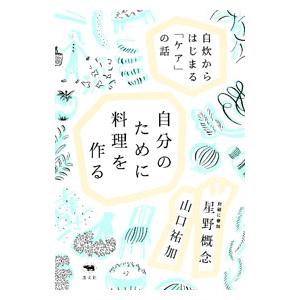 自炊から
はじまる
「ケア」
の話
自分の
ために
料理を
作る
山口祐加
星野概念
晶文社